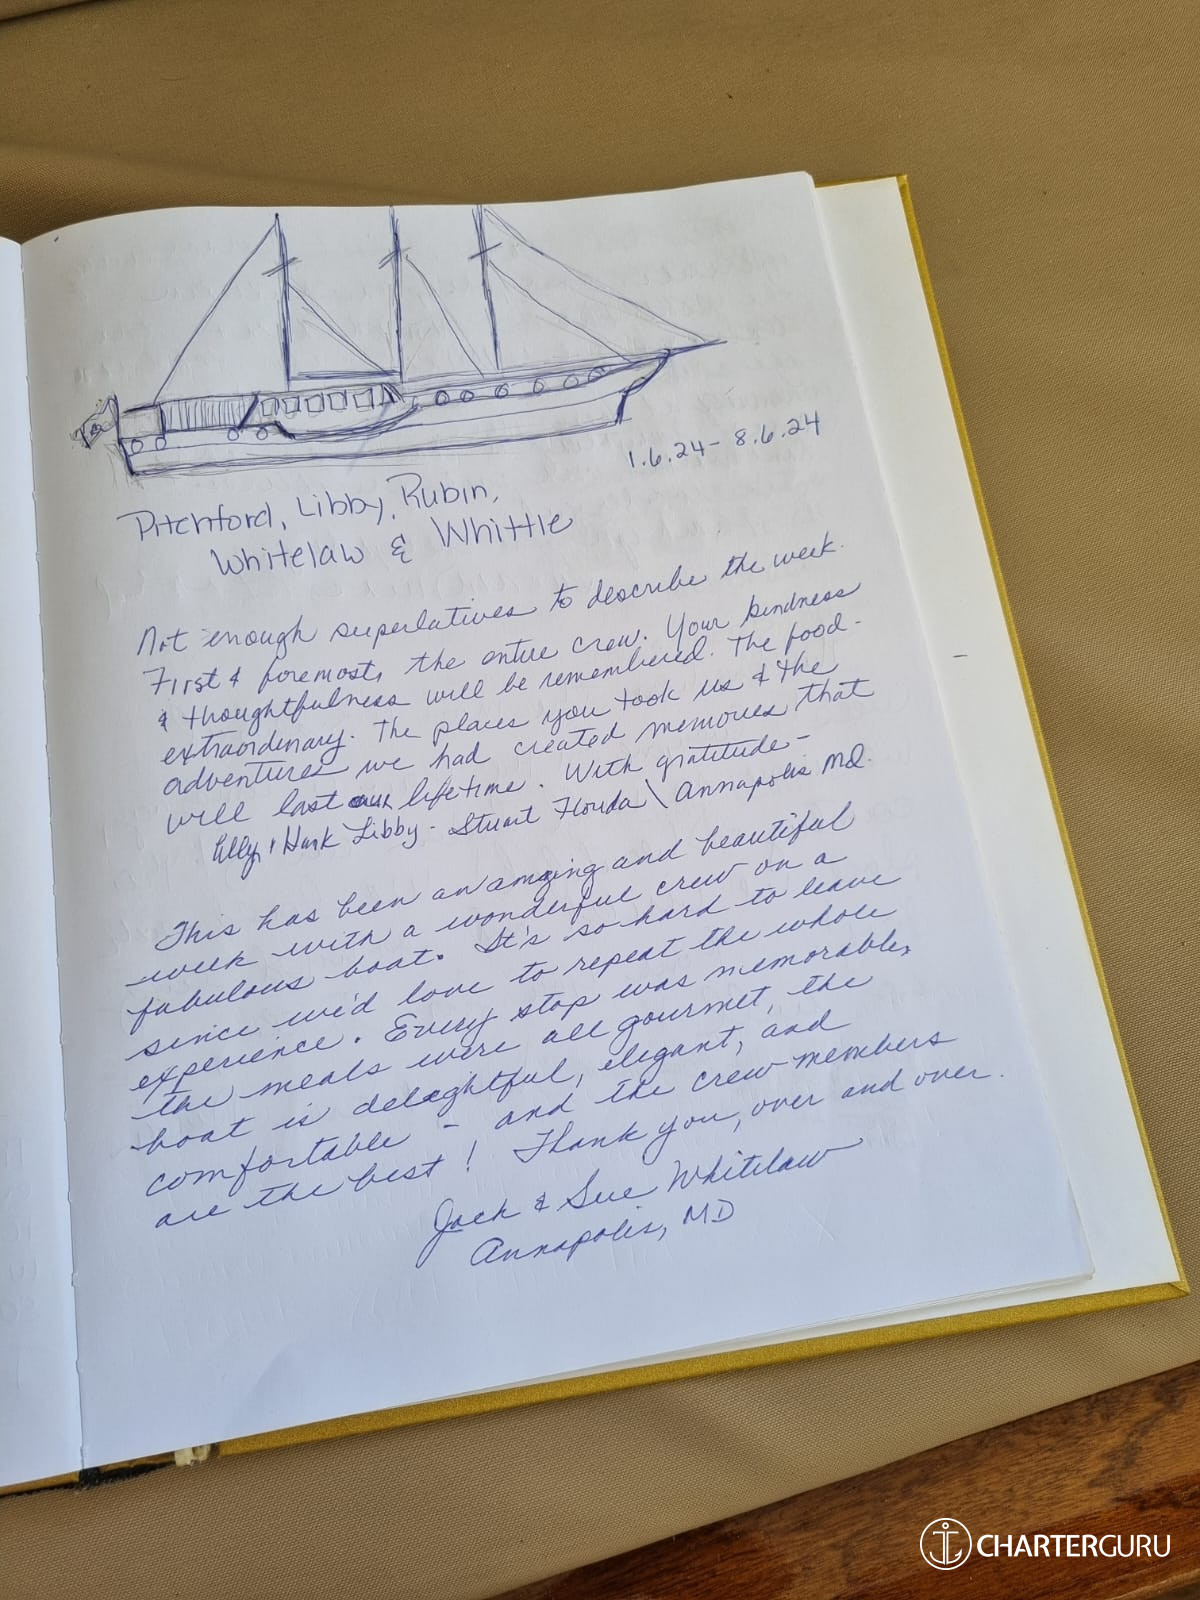 1.6.24 - 8.6.24
Pitchford, Libby, Rubin,
Whitelaw & Whittle
Not enough superlatives to describe the week.
First & foremost, the entire crew. Your kindness
& thoughtfulness will be remembered. The food -
extraordinary. The places you took us & the
adventures we had created memories that
will last our lifetime. With gratitude -
& Hank Libby - Stuart Florida \ Annapolis MD.
This has been an amazing and beautiful
week with a wonderful crew on a
fabulous boat. It's so hard to leave
since we'd love to repeat the whole
experience. Every stop was memorable,
the meals were all gourmet, the
boat is delightful, elegant, and
comfortable - and the crew members
are the best! Thank you, over and over.
Jack & Sue Whitelaw
Annapolis, MD
CHARTERGURU